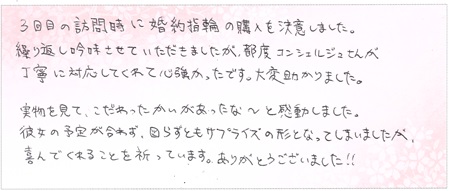 3回目の訪問時に婚約指輪の購入を決意しました。
繰り返し吟味させていただきましたが、都度コンシェルジュさんが
丁寧に対応してくれて心強かったです。大変助かりました。
実物を見て、こだわったかいがあったな〜と感動しました。
彼女の予定が合わず、図らずともサプライズの形となってしまいましたが、
喜んでくれることを祈っています。ありがとうございました!!